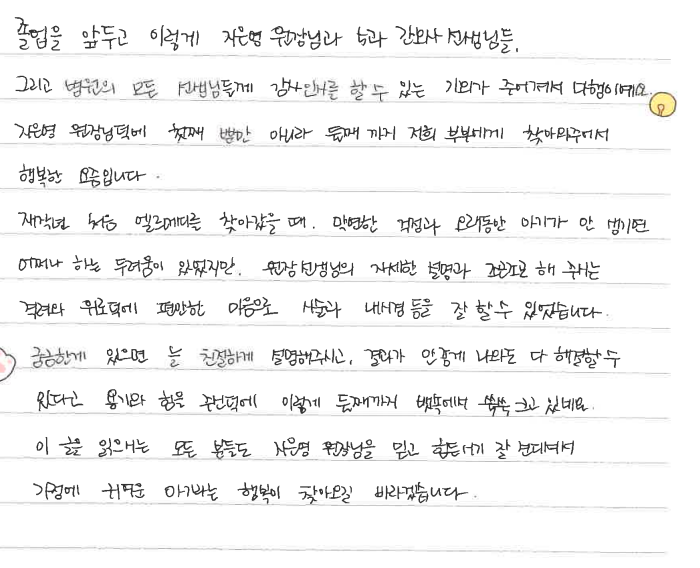 졸업을 앞두고 이렇게 자은영 원장님과 5과 간호사 선생님들,
그리고 병원의 모든 선생님들께 감사인사를 할 수 있는 기회가 주어져서 다행이예요.
자은영 원장님덕에 첫째 뿐만 아니라 둘째까지 저희 부부에게 찾아와주어서
행복한 요즘입니다.
재작년 처음 엘르메디를 찾아갔을 때, 막연한 걱정과 오랫동안 아기가 안 생기면
어쩌나 하는 두려움이 있었지만, 원장선생님의 자세한 설명과 조곤조곤 해 주시는
격려와 위로덕에 편안한 마음으로 시술과 내시경 등을 잘 할 수 있었습니다.
궁금한게 있으면 늘 친절하게 설명해주시고, 결과가 안좋게 나와도 다 해결할 수
있다고 용기와 힘을 주신덕에 이렇게 둘째까지 뱃속에서 쑥쑥 크고 있네요.
이 글을 읽으시는 모든 분들도 자은영 원장님을 믿고 힘든시기 잘 견디셔서
가정에 귀여운 아가라는 행복이 찾아오길 바라겠습니다.